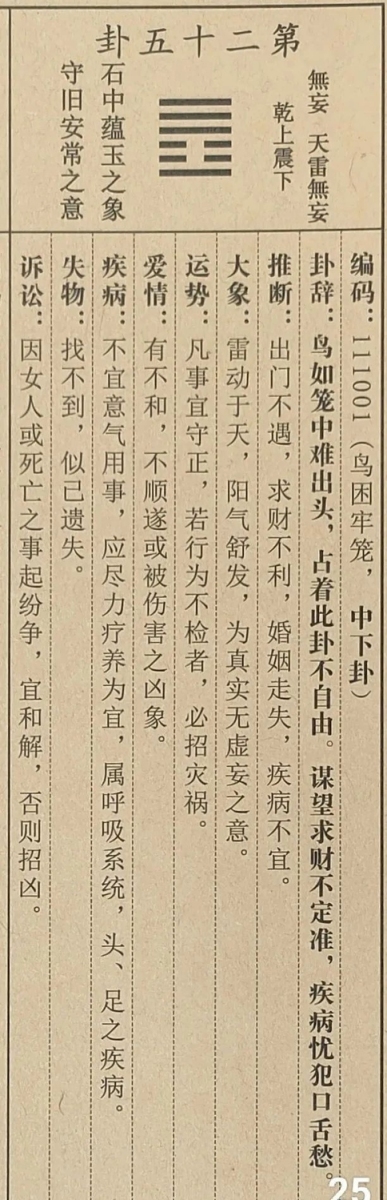 第二十五卦
無妄 天雷無妄
乾上震下
石中蕴玉之象
守旧安常之意
编码：111001（鸟困牢笼，中下卦）
卦辞：鸟如笼中难出头，占着此卦不自由。谋望求财不定准，疾病忧犯口舌愁。
推断：出门不遇，求财不利，婚姻走失，疾病不宜。
大象：雷动于天，阳气舒发，为真实无虚妄之意。
运势：凡事宜守正，若行为不检者，必招灾祸。
爱情：有不和，不顺遂或被伤害之凶象。
疾病：不宜意气用事，应尽力疗养为宜，属呼吸系统，头、足之疾病。
失物：找不到，似已遗失。
诉讼：因女人或死亡之事起纷争，宜和解，否则招凶。
25